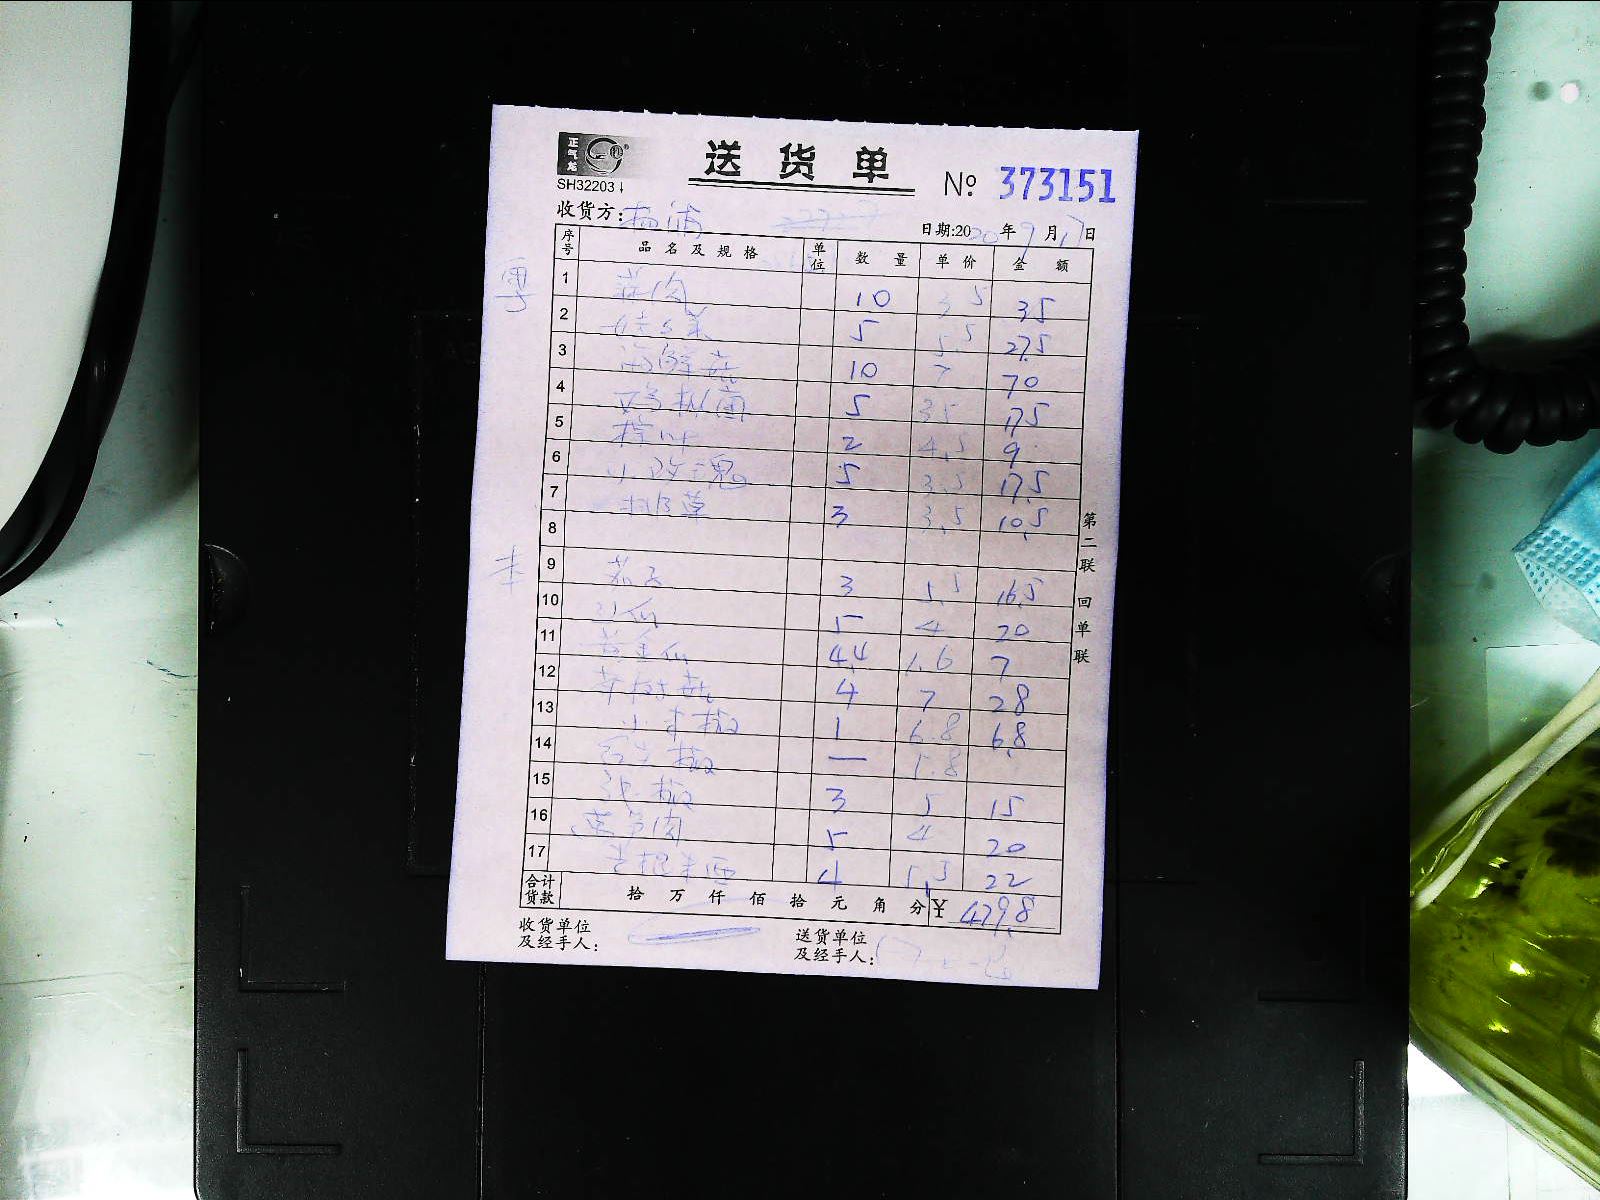 正气龙
送货单
SH32203
№ 373151
收货方: 杨浦
日期:2020年9月17日
序号 品名及规格 单位 数量 单价 金额
粤
1 蒜肉 10 3.5 35
2 5 5.5 27.5
3 海鲜菇 10 7 70
4 鸡枞菌 5 3.5 17.5
5 粽叶 2 4.5 9
6 小玫瑰 5 3.5 17.5
7 排草 3 3.5 10.5
8
本
9 茄子 3 5.5 16.5
10 5 4 20
11 黄金瓜 4.4 1.6 7
12 茶树菇 4 7 28
13 小米椒 1 6.8 6.8
14 — 1.8
15 椒 3 5 15
16 莴笋肉 5 4 20
17 4 5.5 22
合计货款 拾 万 仟 佰 拾 元 角 分 ¥ 479.8
收货单位及经手人:
送货单位及经手人:
第二联 回单联